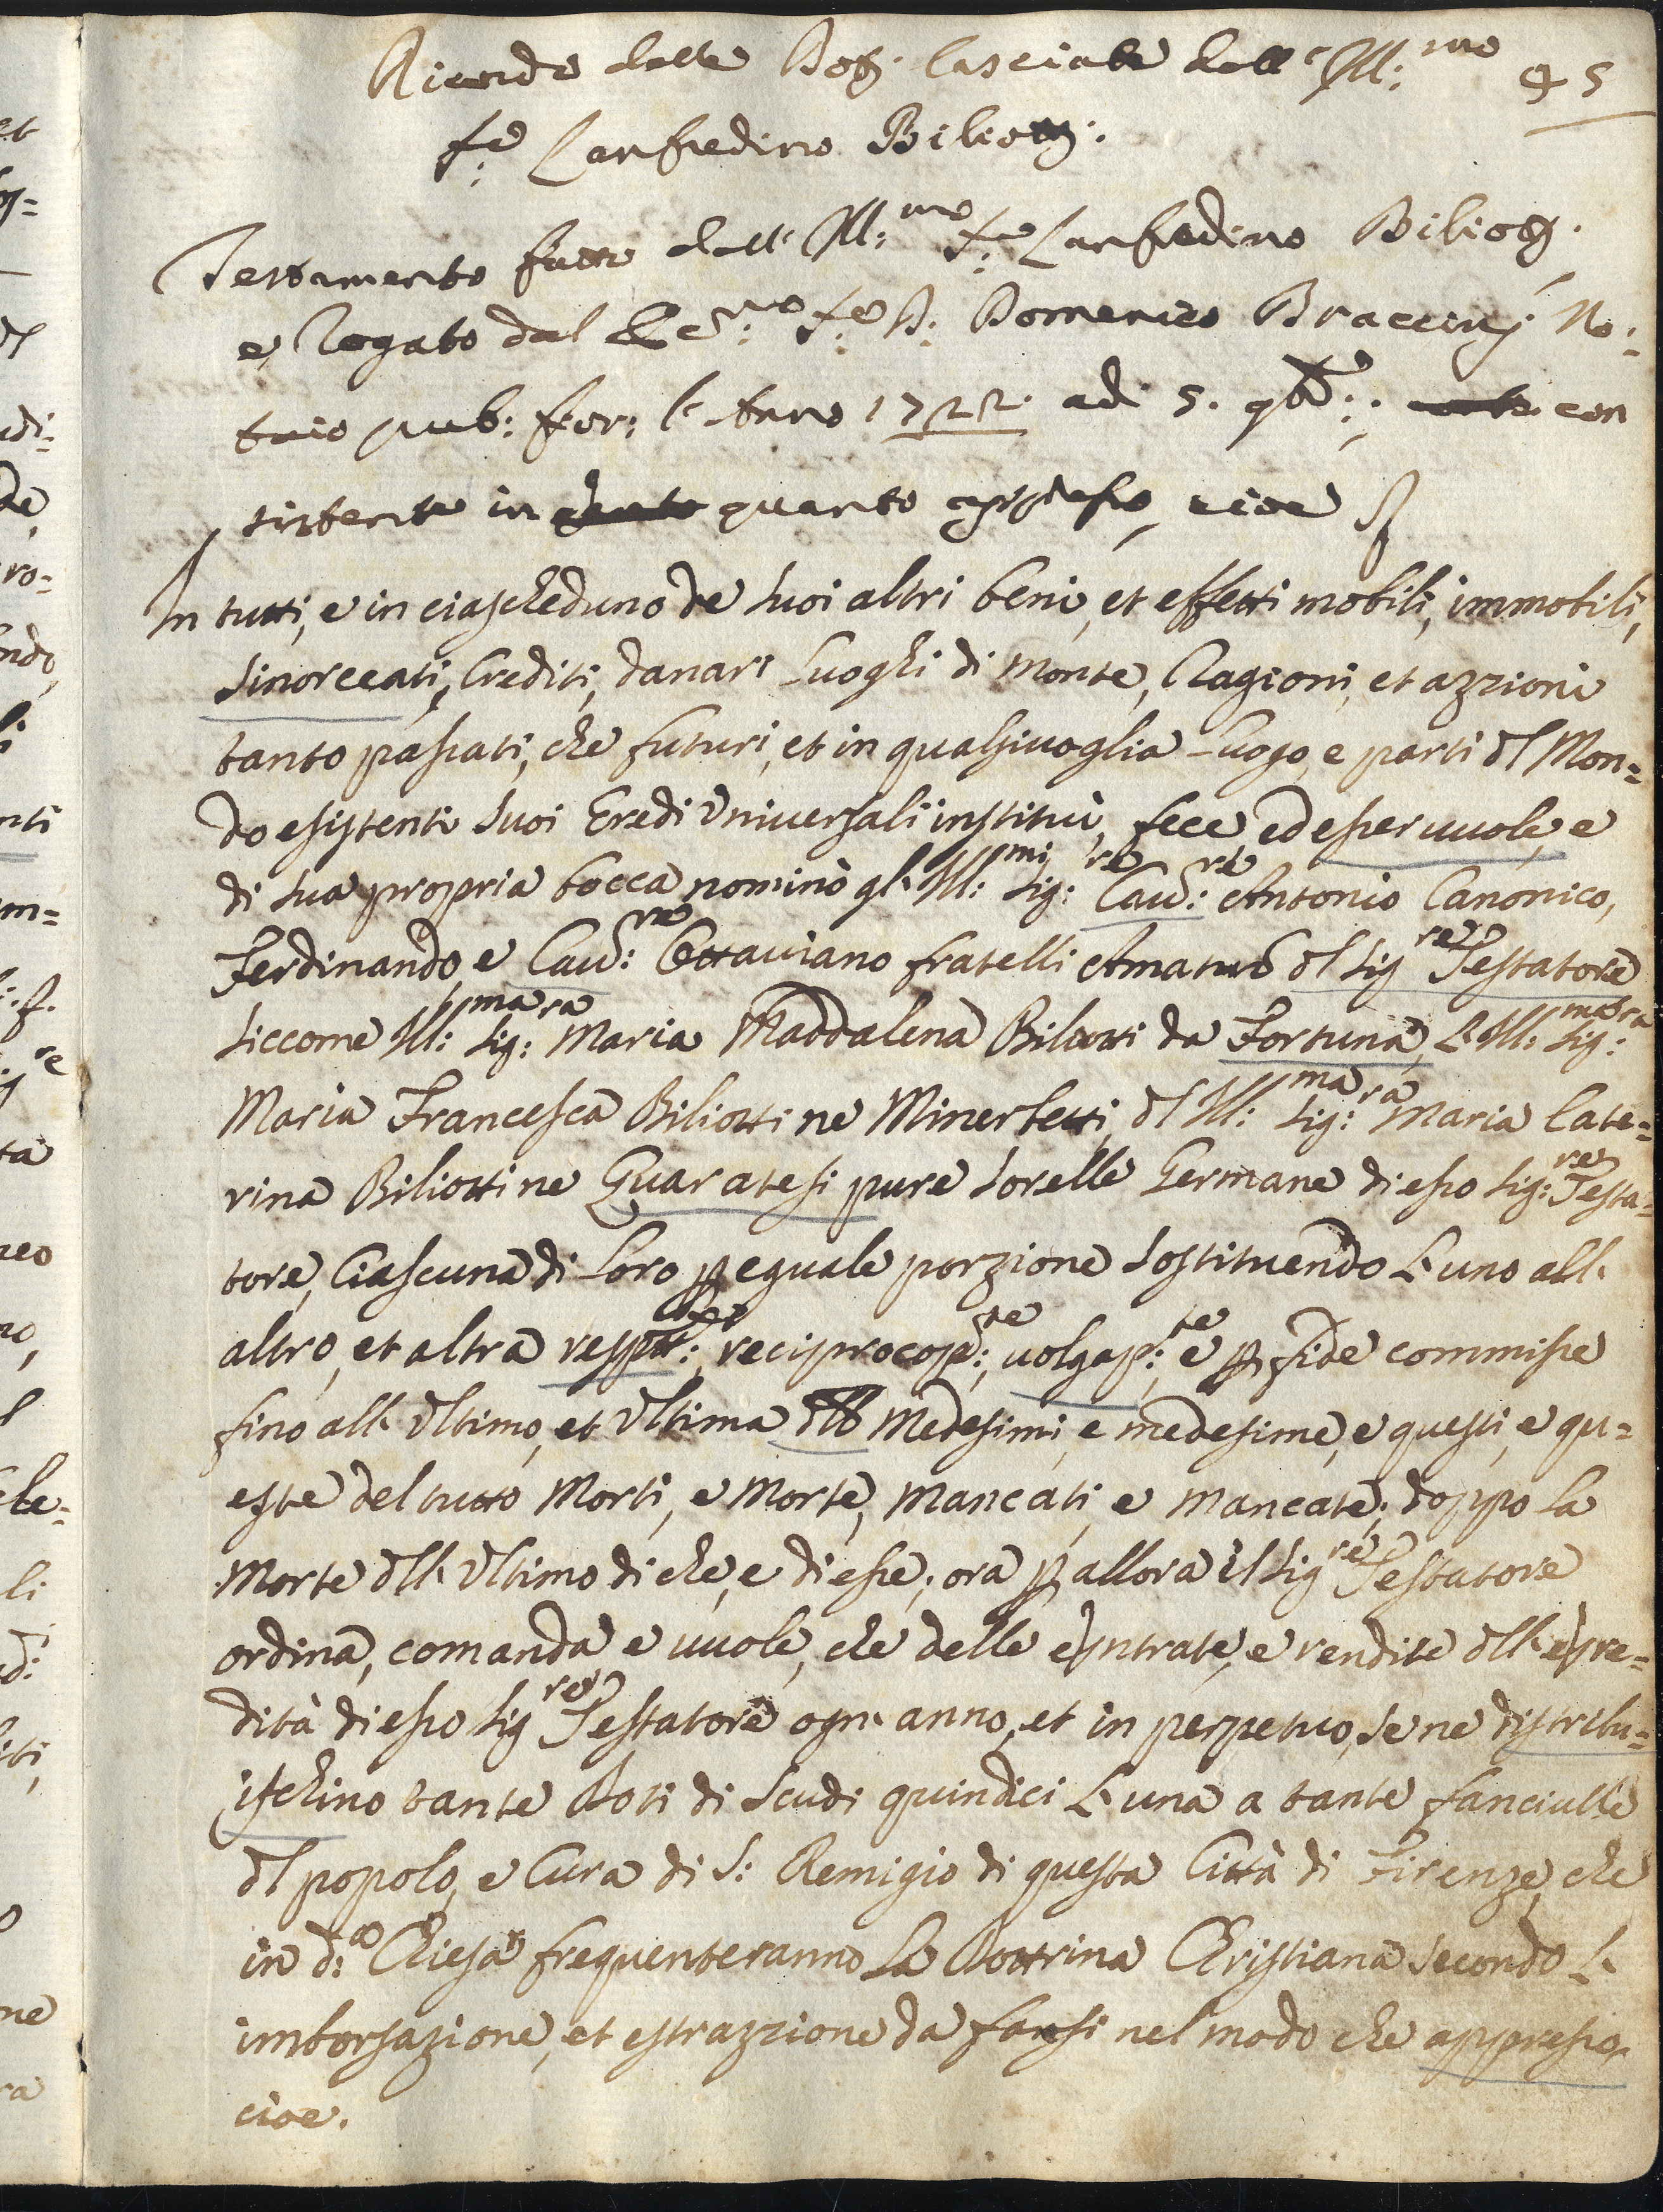 Ricordo delle Doti lasciate dall' Ill:mo 95
S:e Lanfredino Biliotti.
Testamento fatto dall' Ill:mo S:e Lanfredino Biliotti
e, Rogato dal S:e D: Domenico Braccinj No:
taio pub: fior: l' Anno 1722 adi 5. 9bre: con
sistente in quanto appresso, cioe
In tutti, e in ciascheduno de suoi altri beni, et effetti mobili, immobili,
Sinorceati, Crediti, danari Luoghi di Monte, Ragioni, et azzioni
tanto passati, che futuri, et in qualsivoglia Luogo, e parti dl Mon=
do esistenti suoi Eredi Universali instituì, fece ed esser uuole, e
di sua propria bocca nominò gl' Ill:mi Sig:re Cau:re Antonio Canonico,
Ferdinando, e Cau:re Ottaviano fratelli Amatis dl Sig:re Testatore
siccome Ill:ma Sig:ra Maria Maddalena Biliotti da Fortuna, L' Ill:ma Sig:ra
Maria Francesca Biliotti ne Minerbetti, dl Ill:ma Sig:ra Maria Cate=
rina Biliotti ne Quaratesi pure sorelle Germane di esso Sig:re Testa=
tore, Ciascuna di Loro p eguale porzione sostituendo L' uno all'
altro, et altra resptte:, reciprocop:te, uolgap:te, e p fide commisse
fino all' Ultimo, et Ultima dll Medesimi, e medesime, e questi, e qu=
este del tutto Morti, e Morte, Mancati, e Mancate, doppo la
Morte dll' Ultimo di che, e di esse, ora p allora il Sig:re Testatore
ordina, comanda e uuole, che delle entrate, e rendite dll' ere=
dità di esso Sig:re Testatore ogn' anno, et in perpetuo, se ne distribu=
ischino tante Doti di Scudi quindici L' una a tante fanciulle
dl popolo, e Cura di S: Remigio di questa Città di Firenze, che
in d:a Chiesa frequenteranno La Dottrina Christiana secondo L'
imborsazione, et estrazzione da farsi nel modo che appresso,
cioe.